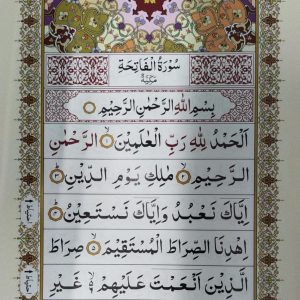 سُورَةُ الْفَاتِحَةِ
مَكِّيَّةٌ
بِسْمِ اللهِ الرَّحْمٰنِ الرَّحِيْمِ
اَلْحَمْدُ لِلّٰهِ رَبِّ الْعٰلَمِيْنَ ۝ الرَّحْمٰنِ
الرَّحِيْمِ ۝ مٰلِكِ يَوْمِ الدِّيْنِ ۝
اِيَّاكَ نَعْبُدُ وَاِيَّاكَ نَسْتَعِيْنُ ۝
اِهْدِنَا الصِّرَاطَ الْمُسْتَقِيْمَ ۝ صِرَاطَ
الَّذِيْنَ اَنْعَمْتَ عَلَيْهِمْ ۙ غَيْرِ